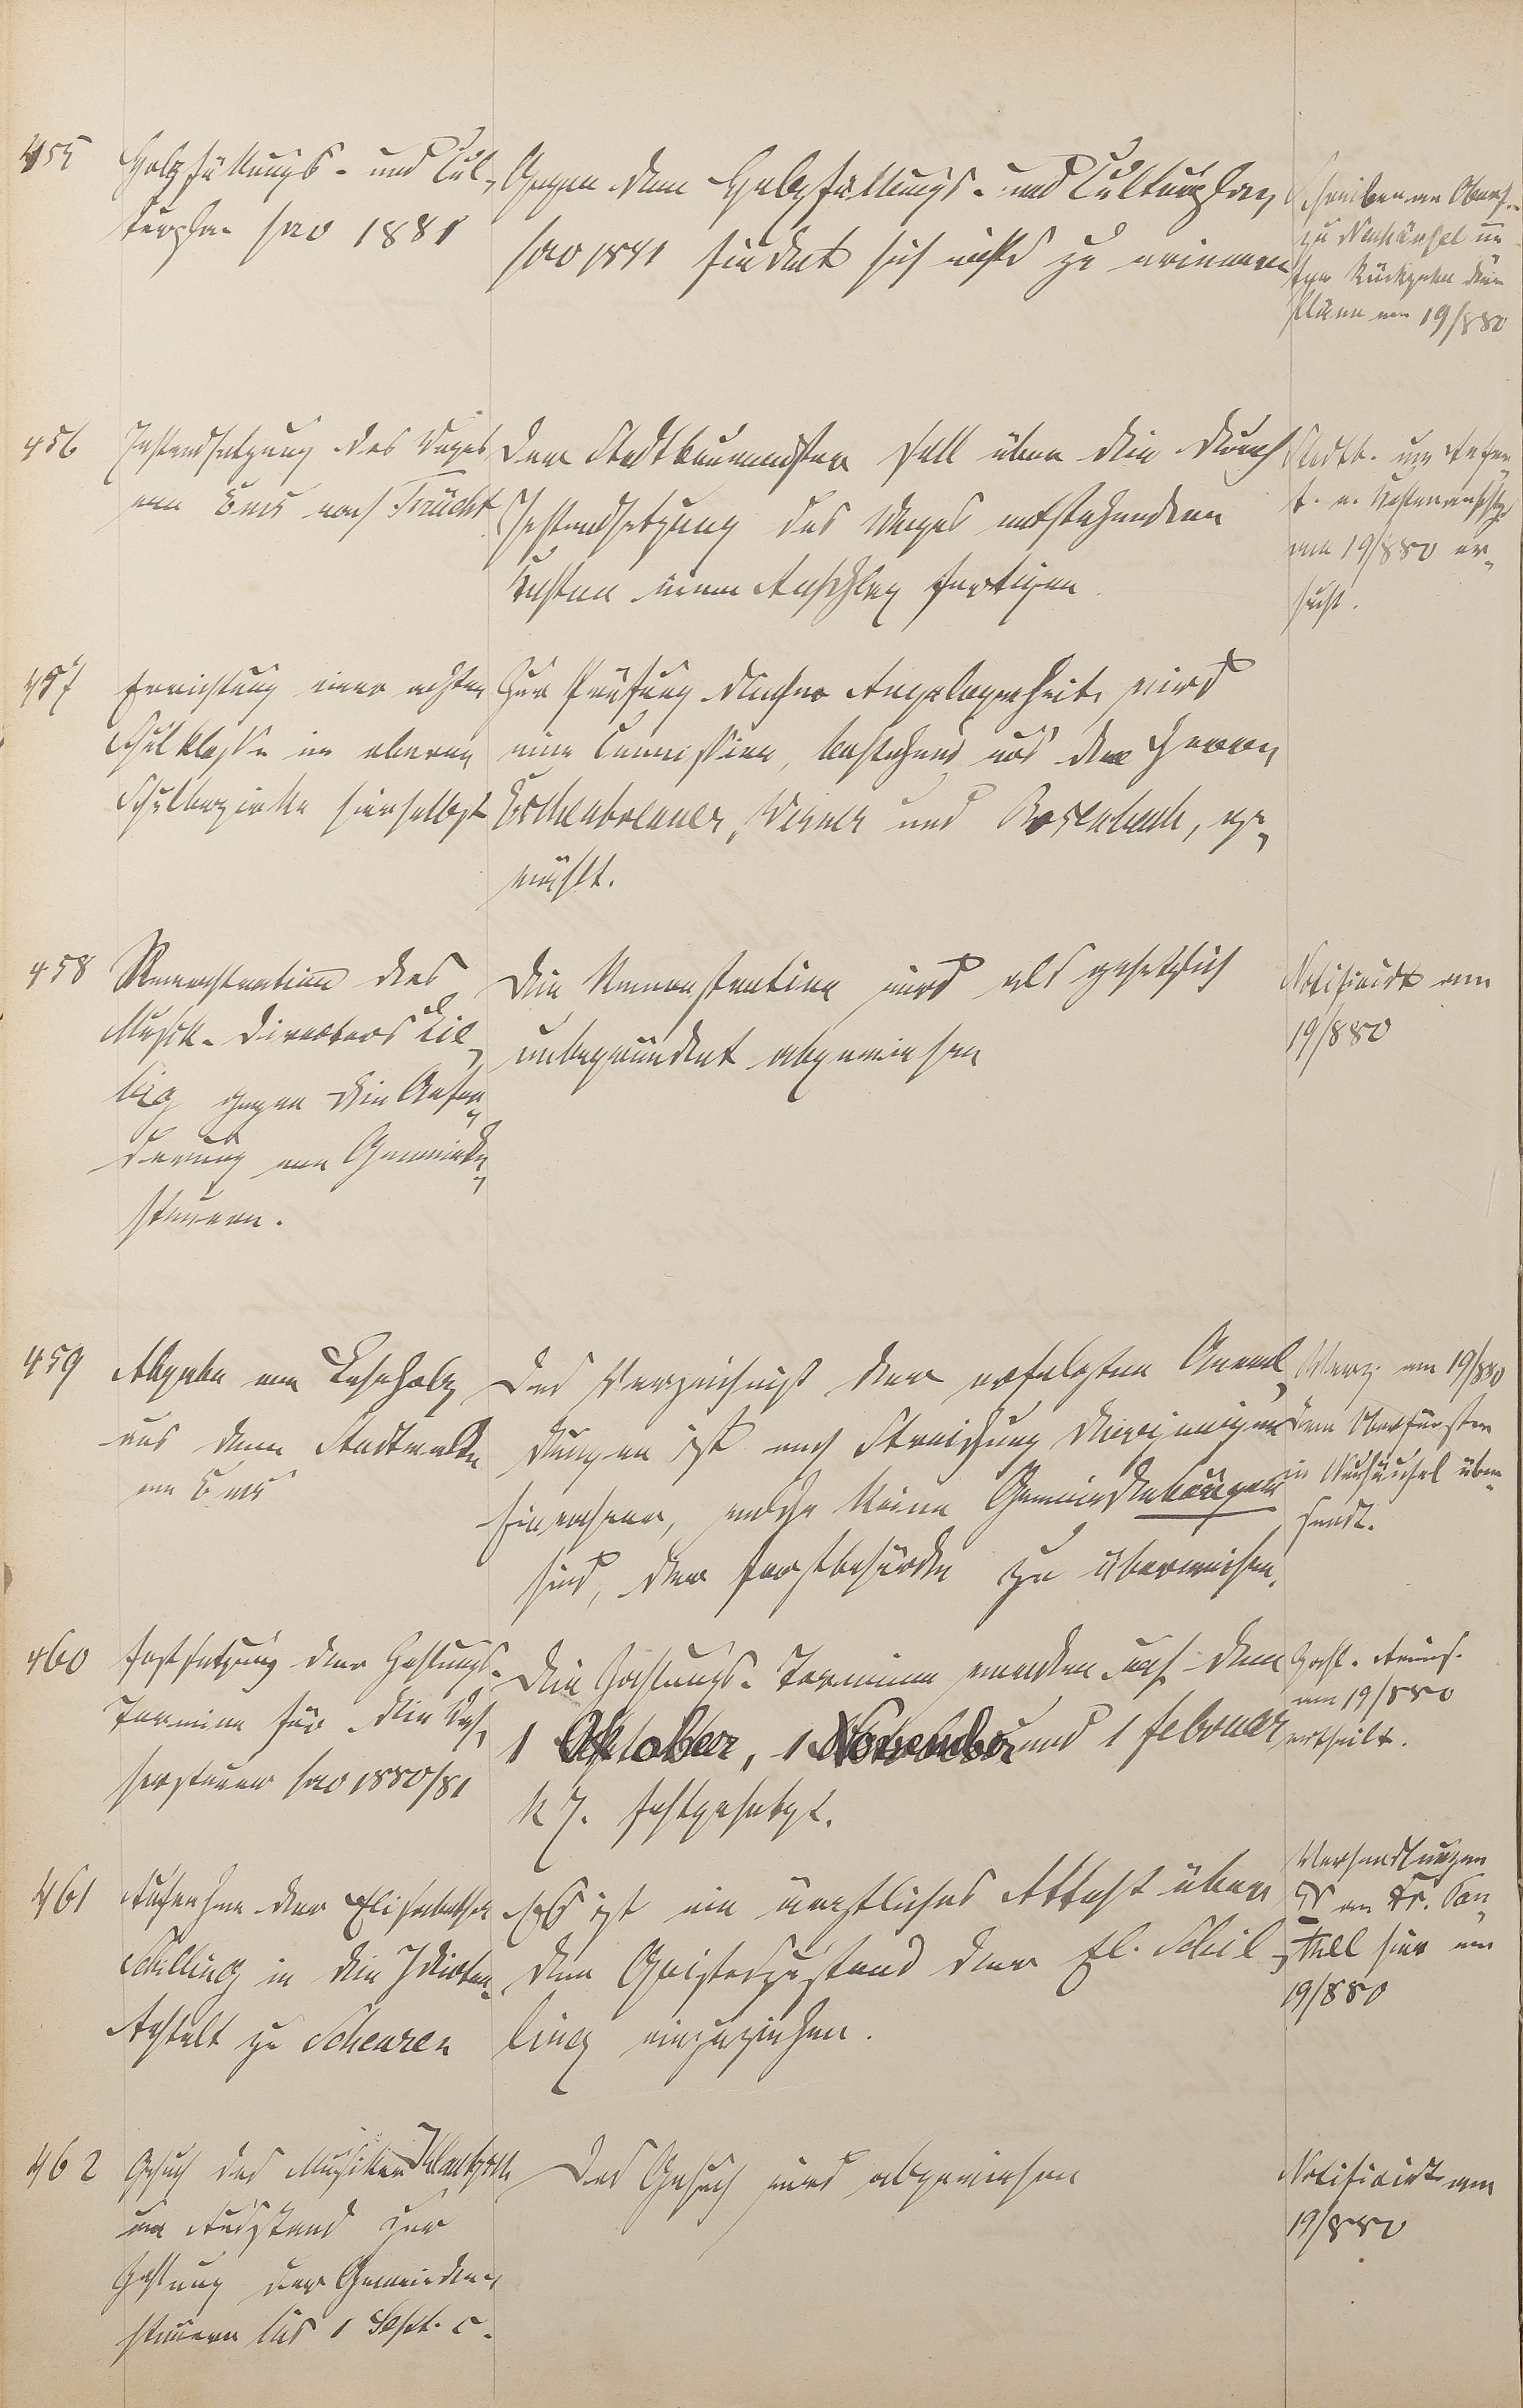 455
Holzfällungs- und Cul-
turplan pro 1881
Gegen den Holzfällungs- und Culturplan
pro 1881 findet sich nichts zu erinnern
Schreiben an Oberf.
zu Welschneudorf un-
ter Rückgabe der
Pläne am 19/880
456
Instandsetzung des Weges
von Ems nach Frücht
Der Stadtbaumeister soll über die durch
Instandsetzung des Weges entstehenden
Kosten einen Anschlag fertigen.
Stadtb. um
u. Kostenanschlg
am 19/880 er-
sucht.
457
Errichtung einer achten
Schulklasse im oberen
Schulbezirke hierselbst
Zur Prüfung dieser Angelegenheit wird
eine Commission, bestehend aus den Herren
Eschenbrenner, Werner und Rosenbach, ge-
wählt.
458
Remonstration des
Musik-Directors Lie-
big gegen die Anfor-
derung von Gemeinde-
steuern.
Die Remonstration wird als gesetzlich
unbegründet abgewiesen
Notificirt am
19/880
459
Abgabe von Leseholz
aus dem Stadtwalde
von Ems
Das Verzeichniß der erfolgten Anmel-
dungen ist nach Streichung derjenigen
Einwohner, welche keine Gemeindebürger
sind, der Forstbehörde zu überweisen.
Verz. am 19/880
dem Oberförster
in überr
sandt.
460
Festsetzung der Hebungs-
Termine für die
steuer pro 1880/81
Die Hebungs-Termine werden auf den
1 Oktober, 1 November und 1 Februar
k. J. festgesetzt.
am 19/880
ertheilt.
461
Aufnahme der Elisabetha
Schilling in die Idioten-
Anstalt zu Scheuren
Es ist ein ärztliches Attest über
den Geisteszustand der El. Schil-
ling einzuziehen.
Verhandlungen
an Dr. Pan-
thel hier am
19/880
462
Gesuch des Musikers
um Ausstand zur
Zahlung der Gemeinde-
steuern bis 1 Sept. c.
Das Gesuch wird abgewiesen
Notificirt am
19/880